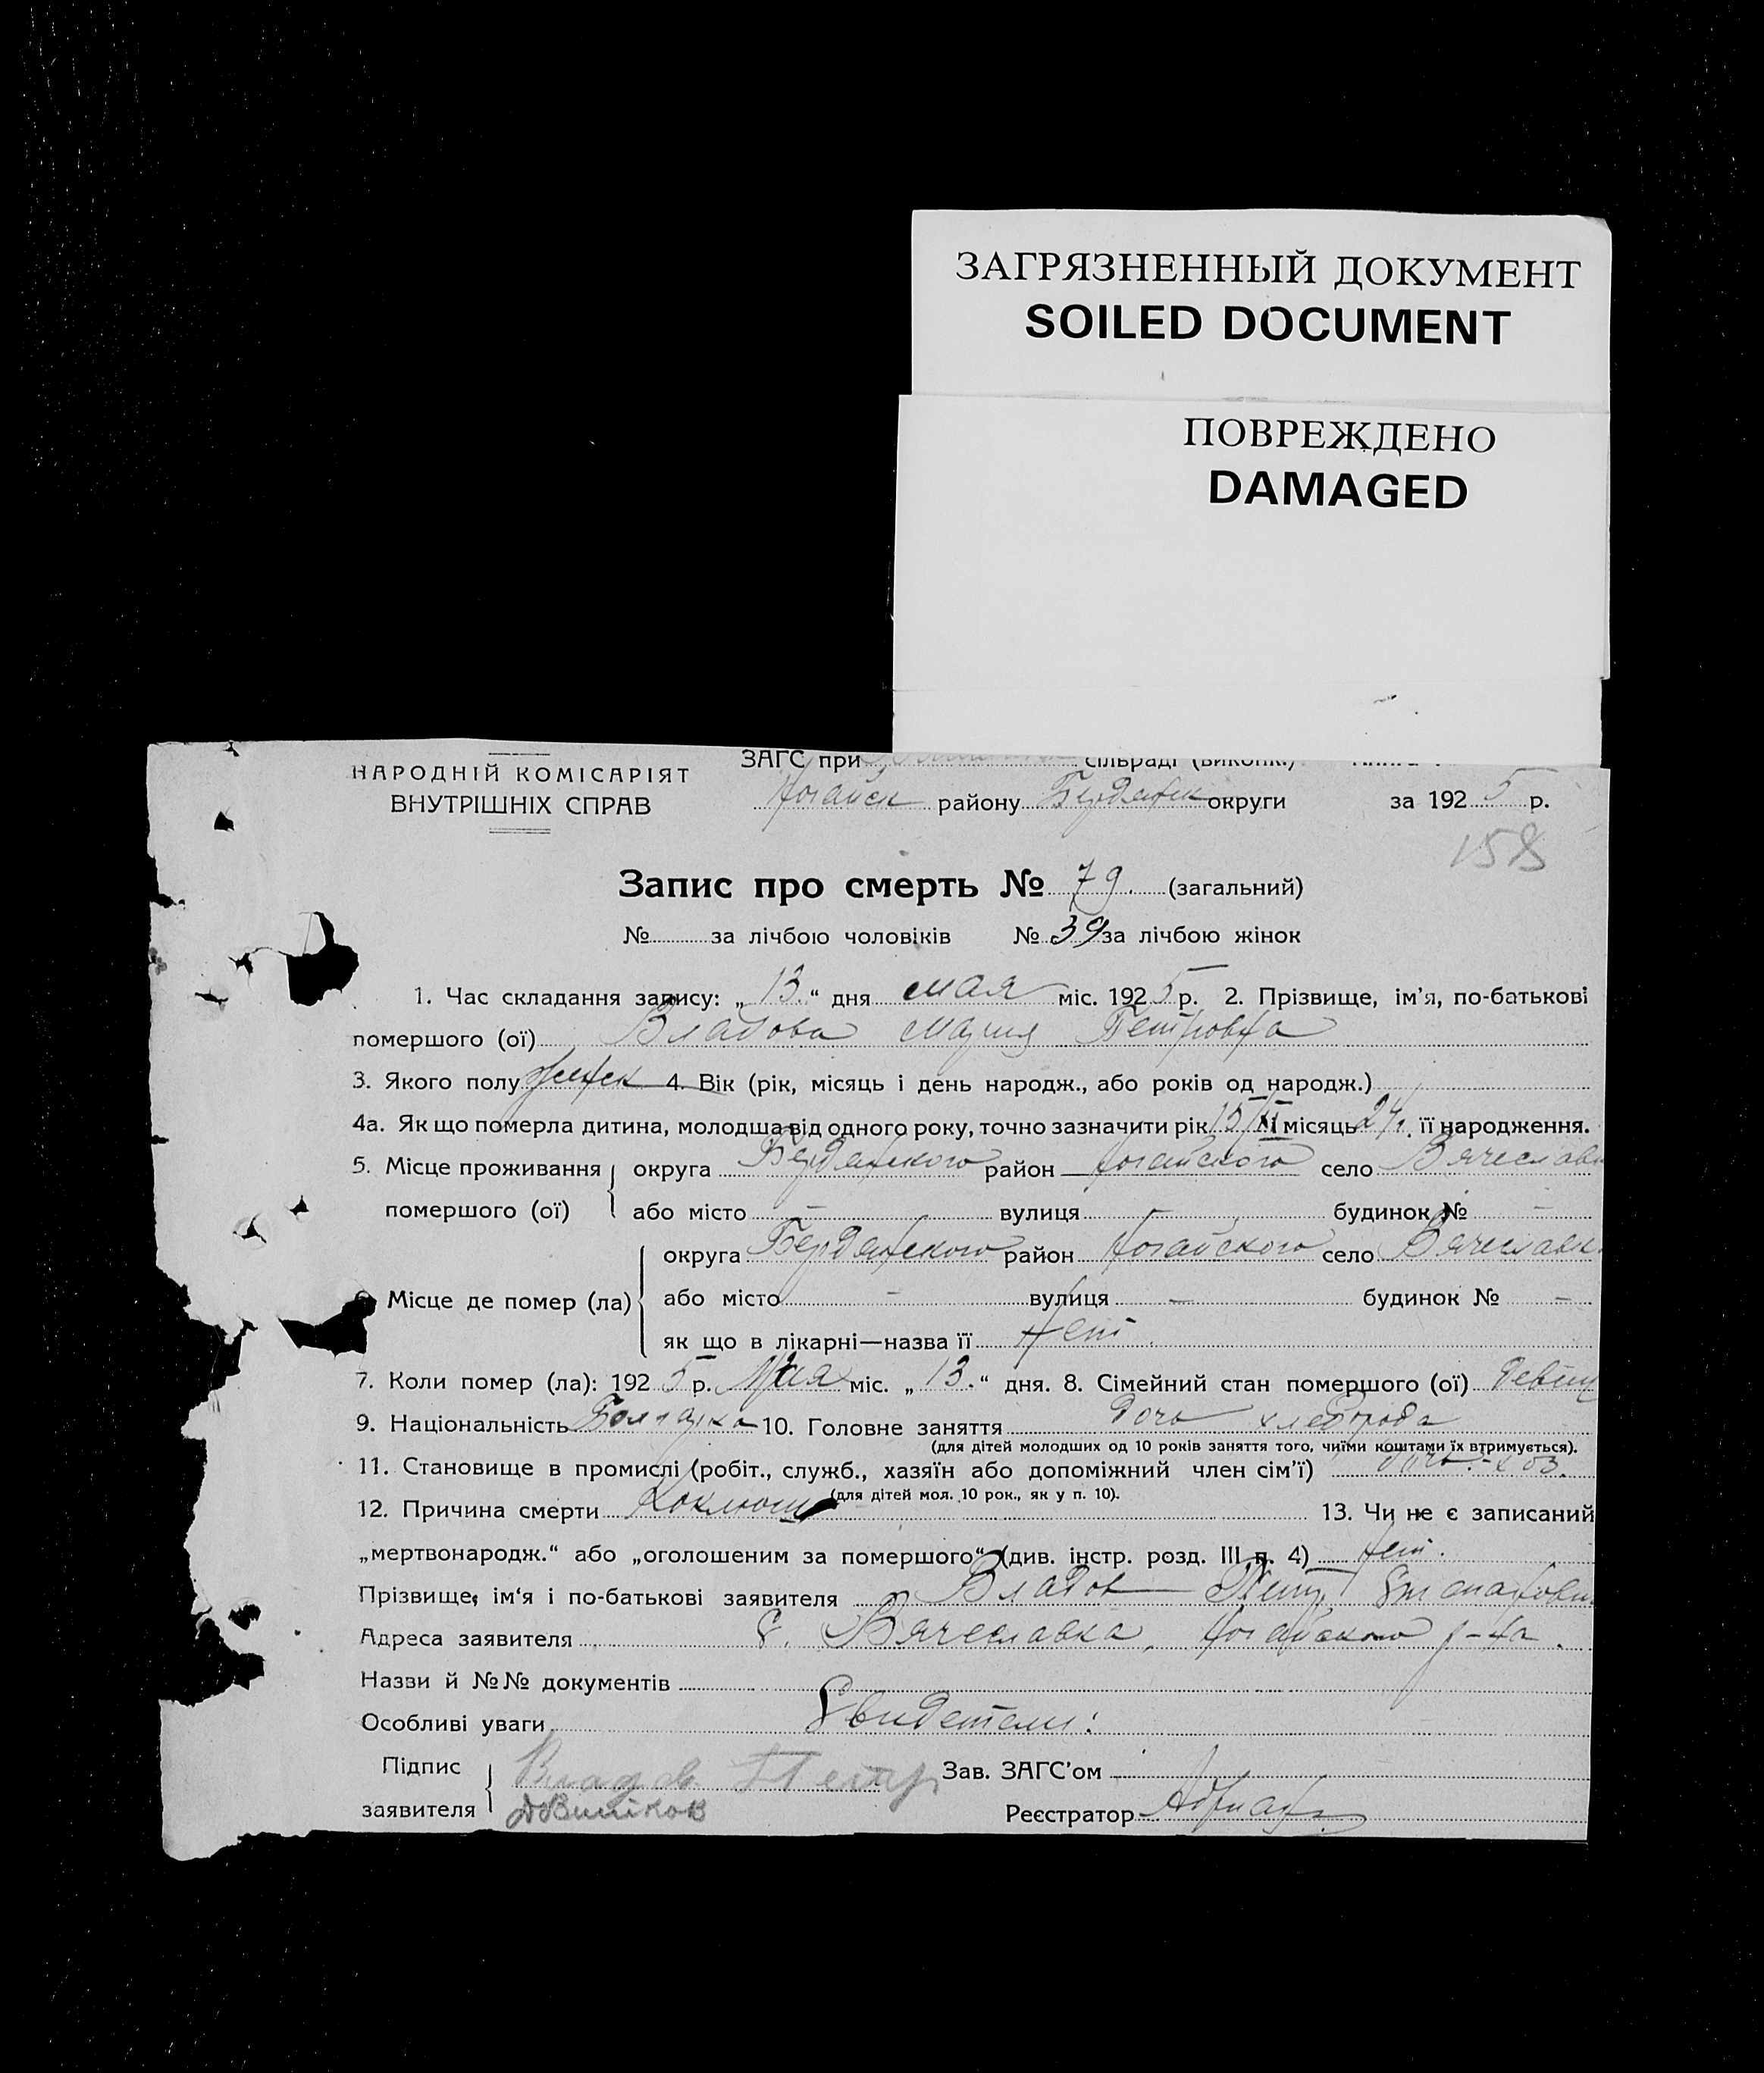 ЗАГРЯЗНЕННЫЙ ДОКУМЕНТ
SOILED DOCUMENT
ПОВРЕЖДЕНО
DAMAGED
НАРОДНІЙ КОМІСАРІЯТ
ВНУТРІШНІХ СПРАВ
ЗАГС при сільраді (виконк.)
Ногайск району Бердянск округи за 1925 р.
158
Запис про смерть № 79. (загальний)
№ за лічбою чоловіків № 39 за лічбою жінок
1. Час складання запису: „13.“ дня мая міс. 1925 р. 2. Прізвище, ім'я, по-батькові
помершого (ої) Владова Мария Петровна
3. Якого полу женск 4. Вік (рік, місяць і день народж., або років од народж.)
4а. Як що померла дитина, молодша від одного року, точно зазначити рік місяць її народження.
5. Місце проживання помершого (ої) округа Бердянского район Ногайского село Вячеславк
або місто – вулиця – будинок № –
6. Місце де помер (ла) округа Бердянского район Ногайского село Вячеславк
або місто – вулиця – будинок № –
як що в лікарні—назва її Нет.
7. Коли помер (ла): 1925 р. Мая міс. „13.“ дня. 8. Сімейний стан помершого (ої) девиц
9. Національність Болгарка 10. Головне заняття дочь хлебороба
(для дітей молодших од 10 років заняття того, чиїми коштами їх втримується).
11. Становище в промислі (робіт., служб., хазяїн або допоміжний член сім'ї) дочь. хоз.
(для дітей мол. 10 рок., як у п. 10).
12. Причина смерти Коклюш 13. Чи не є записаний
„мертвонародж.“ або „оголошеним за помершого“ (див. інстр. розд. III п. 4) Нет.
Прізвище, ім'я і по-батькові заявителя Владов Петр Степанович
Адреса заявителя С. Вячеславка, Ногайского р-на.
Назви й №№ документів
Особливі уваги Свидетели:
Підпис заявителя Владов Петр Зав. ЗАГС'ом
Реєстратор